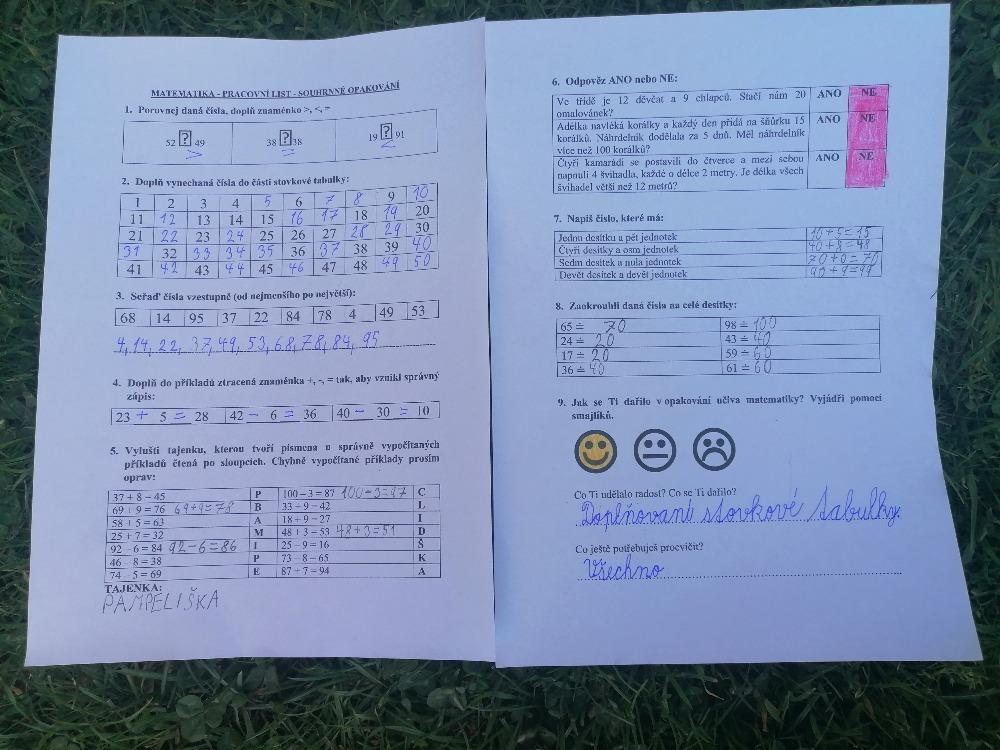 MATEMATIKA - PRACOVNÍ LIST - SOUHRNNÉ OPAKOVÁNÍ
1. Porovnej daná čísla, doplň znaménko >, <, =
52 ? 49 38 ? 38 19 ? 91
> = <
2. Doplň vynechaná čísla do části stovkové tabulky:
1 2 3 4 5 6 7 8 9 10
11 12 13 14 15 16 17 18 19 20
21 22 23 24 25 26 27 28 29 30
31 32 33 34 35 36 37 38 39 40
41 42 43 44 45 46 47 48 49 50
3. Seřaď čísla vzestupně (od nejmenšího po největší):
68 14 95 37 22 84 78 4 49 53
4, 14, 22, 37, 49, 53, 68, 78, 84, 95
4. Doplň do příkladů ztracená znaménka +, -, = tak, aby vznikl správný
zápis:
23 + 5 = 28 42 - 6 = 36 40 - 30 = 10
5. Vylušti tajenku, kterou tvoří písmena u správně vypočítaných
příkladů čtená po sloupcích. Chybně vypočítané příklady prosím
oprav:
37 + 8 = 45 P 100 – 3 = 87 100-3=97 C
69 + 9 = 76 69+9=78 B 33 + 9 = 42 L
58 + 5 = 63 A 18 + 9 = 27 I
25 + 7 = 32 M 48 + 3 = 53 48+3=51 D
92 – 6 = 84 92-6=86 I 25 – 9 = 16 Š
46 – 8 = 38 P 73 – 8 = 65 K
74 – 5 = 69 E 87 + 7 = 94 A
TAJENKA:
PAMPELIŠKA
6. Odpověz ANO nebo NE:
Ve třídě je 12 děvčat a 9 chlapců. Stačí nám 20 ANO NE
omalovánek?
Adélka navléká korálky a každý den přidá na šňůrku 15 ANO NE
korálků. Náhrdelník dodělala za 5 dnů. Měl náhrdelník
více než 100 korálků?
Čtyři kamarádi se postavili do čtverce a mezi sebou ANO NE
napnuli 4 švihadla, každé o délce 2 metry. Je délka všech
švihadel větší než 12 metrů?
7. Napiš číslo, které má:
Jednu desítku a pět jednotek 10+5=15
Čtyři desítky a osm jednotek 40+8=48
Sedm desítek a nula jednotek 70+0=70
Devět desítek a devět jednotek 90+9=99
8. Zaokrouhli daná čísla na celé desítky:
65 ≐ 70 98 ≐ 100
24 ≐ 20 43 ≐ 40
17 ≐ 20 59 ≐ 60
36 ≐ 40 61 ≐ 60
9. Jak se Ti dařilo v opakování učiva matematiky? Vyjádři pomocí
smajlíků.
Co Ti udělalo radost? Co se Ti dařilo?
Doplňovaní stovkové tabulky.
Co ještě potřebuješ procvičit?
Všechno